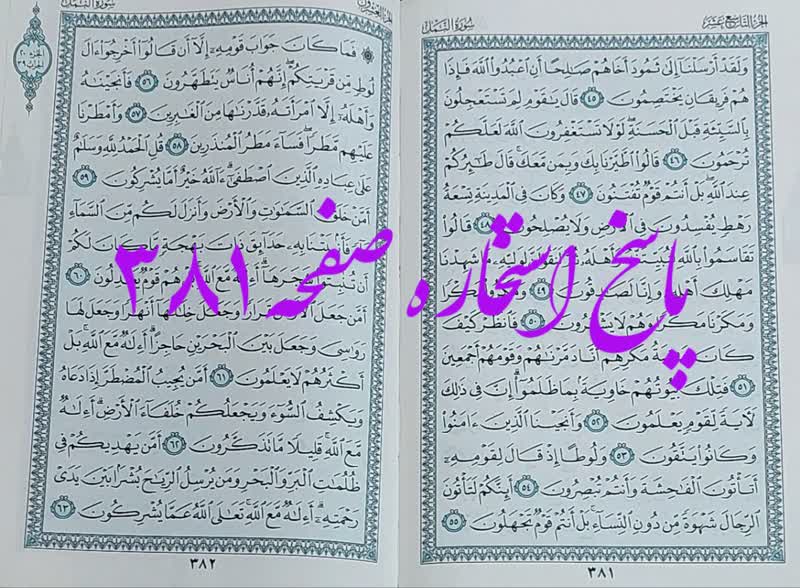 الجزء التاسع عشر
سورة النمل
ولقد أرسلنا إلى ثمود أخاهم صالحا أن اعبدوا الله فإذا
هم فريقان يختصمون ٤٥ قال يقوم لم تستعجلون
بالسيئة قبل الحسنة لولا تستغفرون الله لعلكم
ترحمون ٤٦ قالوا اطيرنا بك وبمن معك قال طئركم
عند الله بل أنتم قوم تفتنون ٤٧ وكان في المدينة تسعة
رهط يفسدون في الأرض ولا يصلحون ٤٨ قالوا
تقاسموا بالله لنبيتنه وأهله ثم لنقولن لوليه ما شهدنا
مهلك أهله وإنا لصدقون ٤٩ ومكروا مكرا
ومكرنا مكرا وهم لا يشعرون ٥٠ فانظر كيف
كان عقبة مكرهم أنا دمرنهم وقومهم أجمعين
٥١ فتلك بيوتهم خاوية بما ظلموا إن في ذلك
لأية لقوم يعلمون ٥٢ وأنجينا الذين ءامنوا
وكانوا يتقون ٥٣ ولوطا إذ قال لقومه
أتأتون الفحشة وأنتم تبصرون ٥٤ أئنكم لتأتون
الرجال شهوة من دون النساء بل أنتم قوم تجهلون ٥٥
٣٨١
سورة النمل
الجزء العشرون
فما كان جواب قومه إلا أن قالوا أخرجوا ءال
لوط من قريتكم إنهم أناس يتطهرون ٥٦ فأنجينه
وأهله إلا امرأته قدرنها من الغبرين ٥٧ وأمطرنا
عليهم مطرا فساء مطر المنذرين ٥٨ قل الحمد لله وسلم
على عباده الذين اصطفى ءالله خير أما يشركون ٥٩
أمن خلق السموت والأرض وأنزل لكم من السماء
ماء فأنبتنا به حدائق ذات بهجة ما كان لكم
أن تنبتوا شجرها أءله مع الله بل هم قوم يعدلون ٦٠
أمن جعل الأرض قرارا وجعل خللها أنهرا وجعل لها
روسي وجعل بين البحرين حاجزا أءله مع الله بل
أكثرهم لا يعلمون ٦١ أمن يجيب المضطر إذا دعاه
ويكشف السوء ويجعلكم خلفاء الأرض أءله
مع الله قليلا ما تذكرون ٦٢ أمن يهديكم في
ظلمت البر والبحر ومن يرسل الريح بشرا بين يدى
رحمته أءله مع الله تعلى الله عما يشركون ٦٣
٣٨٢
پاسخ استخاره صفحه ۳۸۱